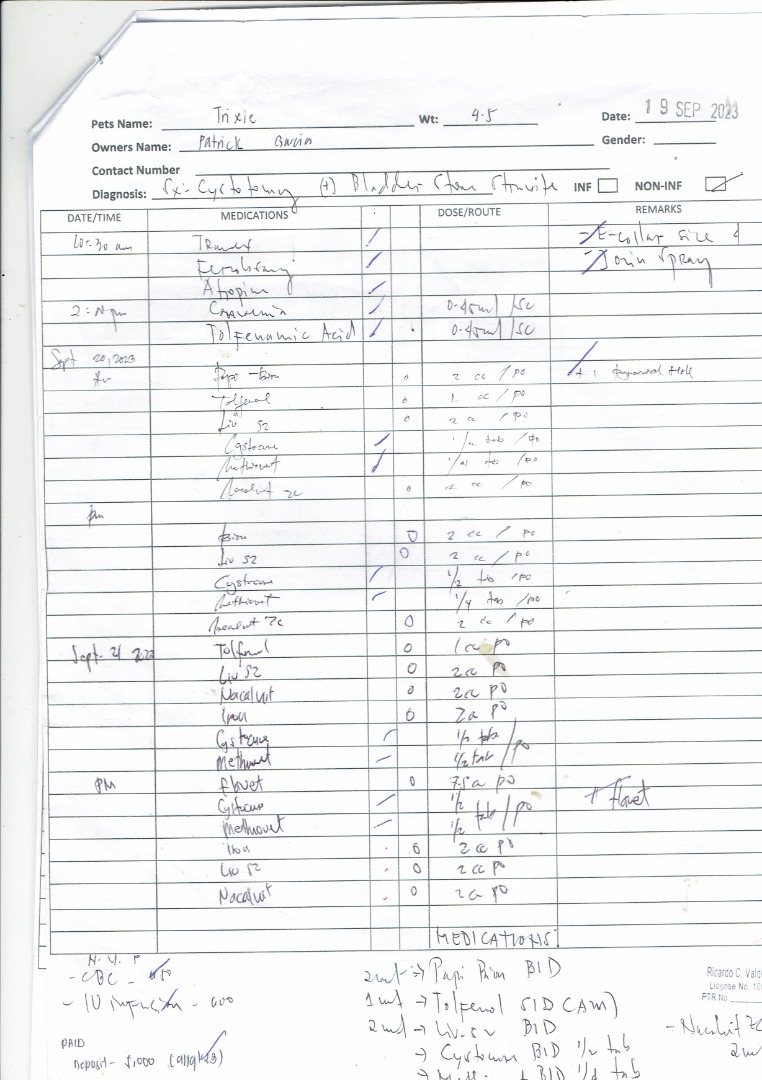 Pets Name: Trixie Wt: 4.5 Date: 19 SEP 2023
Owners Name: Patrick Garcia Gender:
Contact Number
Diagnosis: Sx- Cystotomy (+) Bladder Stone Struvite INF NON-INF
DATE/TIME MEDICATIONS DOSE/ROUTE REMARKS
10:30 am Tramex - E-collar size 4
- Jorin Spray
Atropine
2: pm Convenia 0.45ml /SC
Tolfenamic Acid 0.45ml /SC
Sept 20, 2023
Papi - Iron 2 cc / po
Tolfenol 1 cc / po
Liv 52 2 cc / po
Cystocure 1/2 tab / po
Methiovet tab / po
Nacalvit Zc 2 cc / po
pm
Iron 2 cc / po
Liv 52 2 cc / po
Cystocure 1/2 tab / po
Methiovet 1/4 tab / po
Nacalvit Zc 2 cc / po
Sept. 21 2023 Tolfenol 1 cc po
Liv 52 2 cc po
Nacalvit 2 cc po
Iron 2 cc po
Cystocure 1/2 tab
Methiovet 1/2 tab / po
PM flovet po + flovet
Cystocure 1/2
Methiovet 1/2 tab / po
Iron 2 cc po
Liv 52 2 cc po
Nacalvit 2 cc po
MEDICATIONS:
N.Y.P
- CBC - 850
- IV infusion - 600
PAID
Deposit - 5,000
2ml → Papi Iron BID
1 ml → Tolfenol SID (AM)
2 ml → Liv.52 BID
→ Cystocure BID 1/2 tab
BID 1/4 tab
Ricardo C. Vald
License No. 10
PTR No.
- Nacalvit Zc
2ml